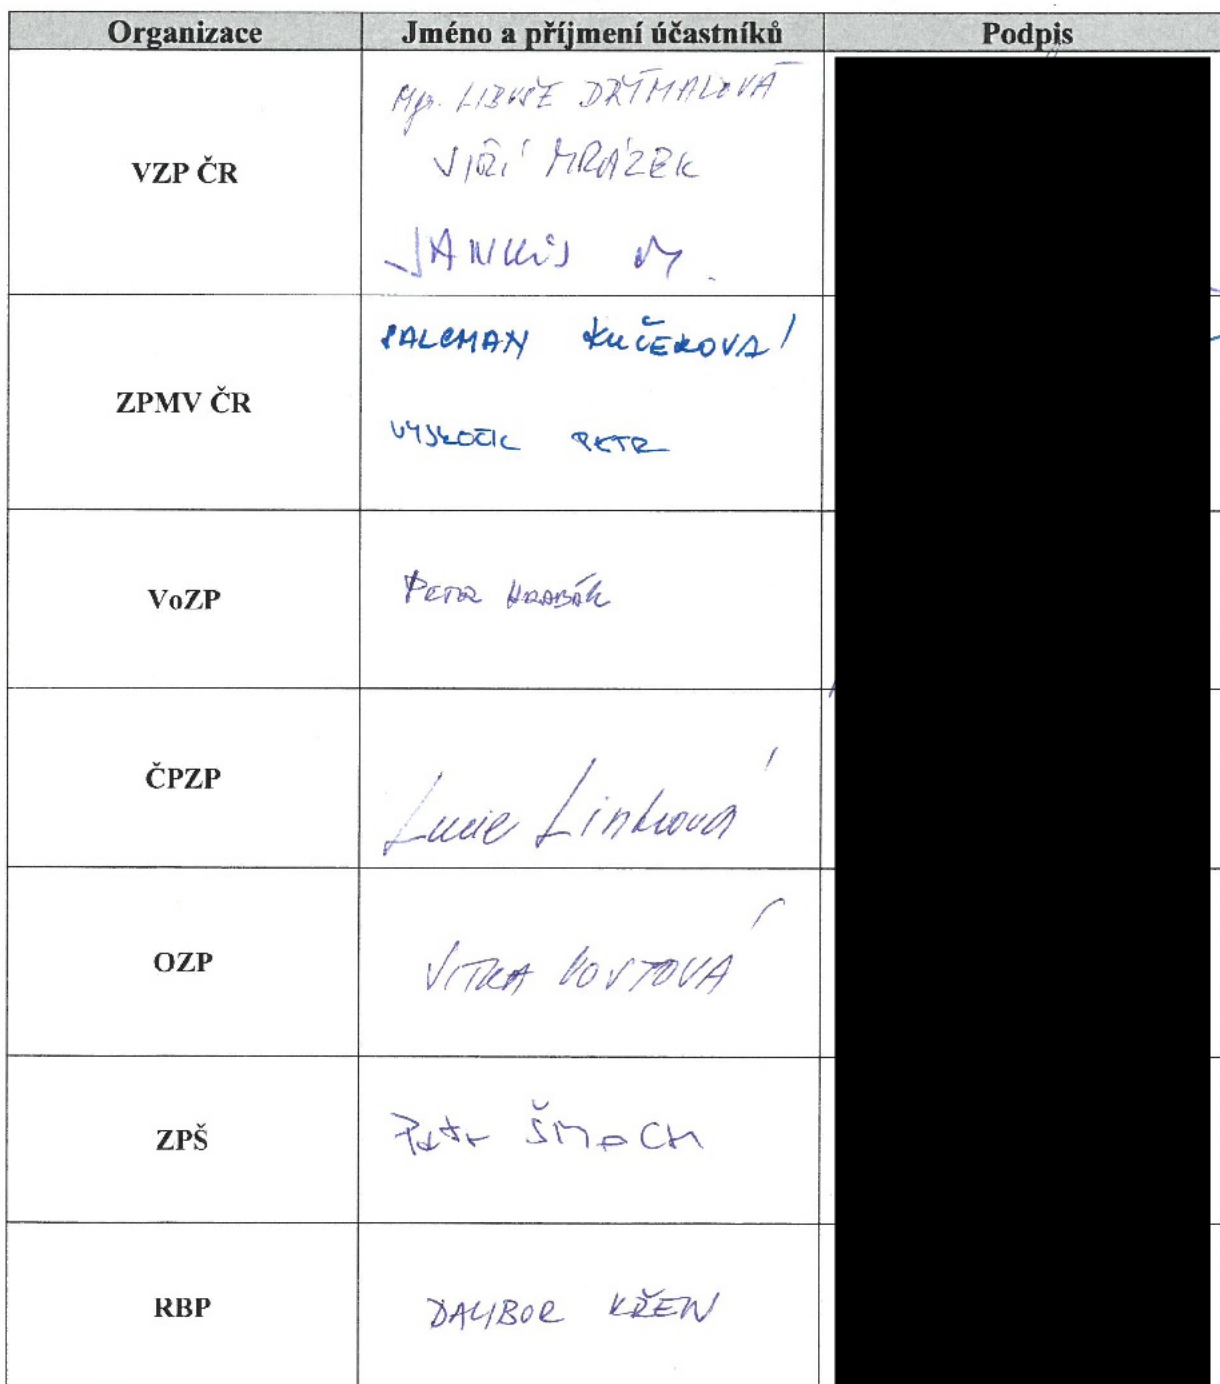 Organizace Jméno a příjmení účastníků Podpis
VZP ČR
Mgr. LIBUŠE DRTÍMALOVÁ
JIŘÍ MRÁZEK
JANKŮJ M.
ZPMV ČR
SALCMAN KUČEROVÁ
VYSKOČIL PETR
VoZP
PETR HRABÁK
ČPZP
Lucie Linhová
OZP
VITKA VOSTOVÁ
ZPŠ
Petr ŠMACH
RBP
DALIBOR KŘEN